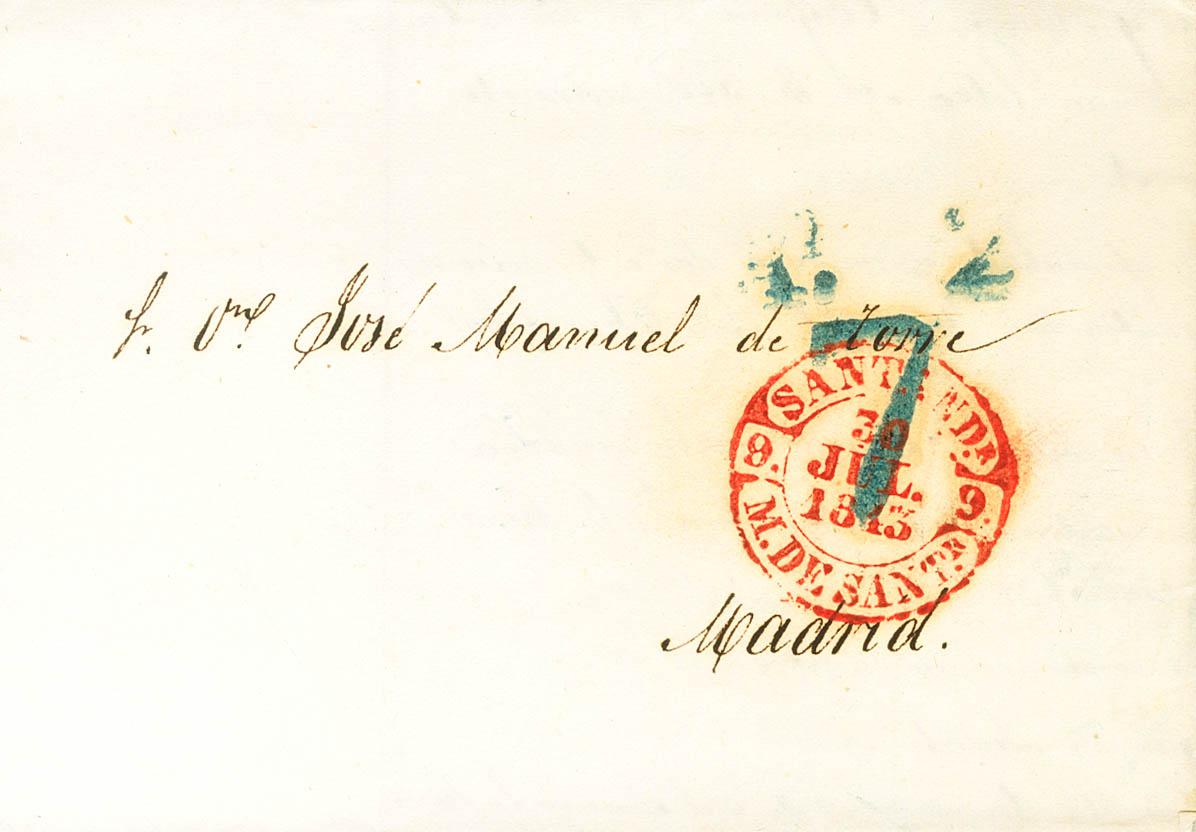 Sr. Dn. José Manuel de Torre
7
SANTANDR.
9. 9.
30
JUL.
1843
M. DE SANTR.
Madrid.